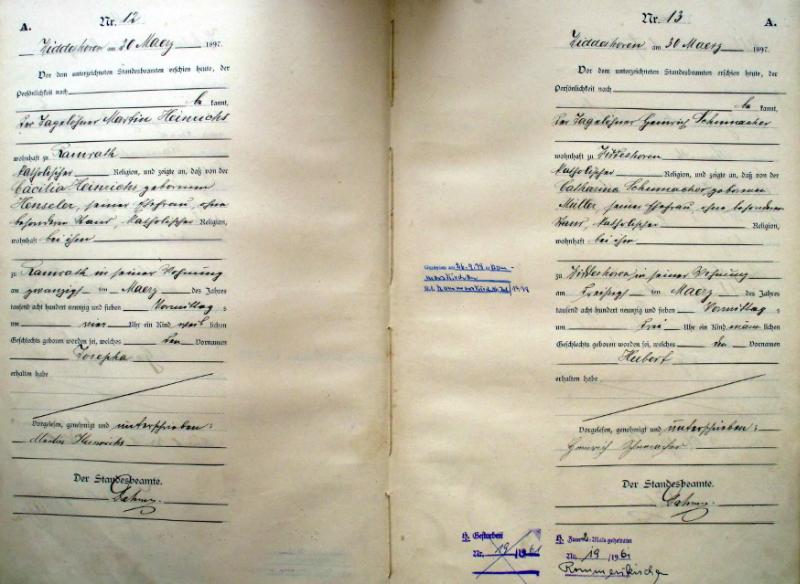 A.
Nr. 12
Widdeshoven am 20 Maerz 1897.
Vor dem unterzeichneten Standesbeamten erschien heute, der
Persönlichkeit nach
be kannt,
der Tagelöhner Martin Heinrichs
wohnhaft zu Ramrath
katholischer Religion, und zeigte an, daß von der
Cäcilia Heinrichs geborenen
Henseler, seiner Ehefrau, ohne
besonderen Stand, katholischer Religion,
wohnhaft bei ihm
zu Ramrath in seiner Wohnung
am zwanzigsten Maerz des Jahres
tausend acht hundert neunzig und sieben Vormittags
um vier Uhr ein Kind weiblichen
Geschlechts geboren worden sei, welches den Vornamen
Josepha
erhalten habe
Vorgelesen, genehmigt und unterschrieben:
Martin Heinrichs
Der Standesbeamte.
Nr. 13
A.
Widdeshoven am 30 Maerz 1897.
Vor dem unterzeichneten Standesbeamten erschien heute, der
Persönlichkeit nach
be kannt,
der Tagelöhner Heinrich Schumacher
wohnhaft zu Widdeshoven
katholischer Religion, und zeigte an, daß von der
Catharina Schumacher geborenen
Müller, seiner Ehefrau, ohne besonderen
Stand, katholischer Religion,
wohnhaft bei ihm
zu Widdeshoven in seiner Wohnung
am dreißigsten Maerz des Jahres
tausend acht hundert neunzig und sieben Vormittags
um drei Uhr ein Kind männlichen
Geschlechts geboren worden sei, welches den Vornamen
Hubert
erhalten habe
Vorgelesen, genehmigt und unterschrieben:
Heinrich Schumacher
Der Standesbeamte.
H. Gestorben
Nr. 19 / 1961
H.
Nr. 19 / 1961
Rommerskirchen